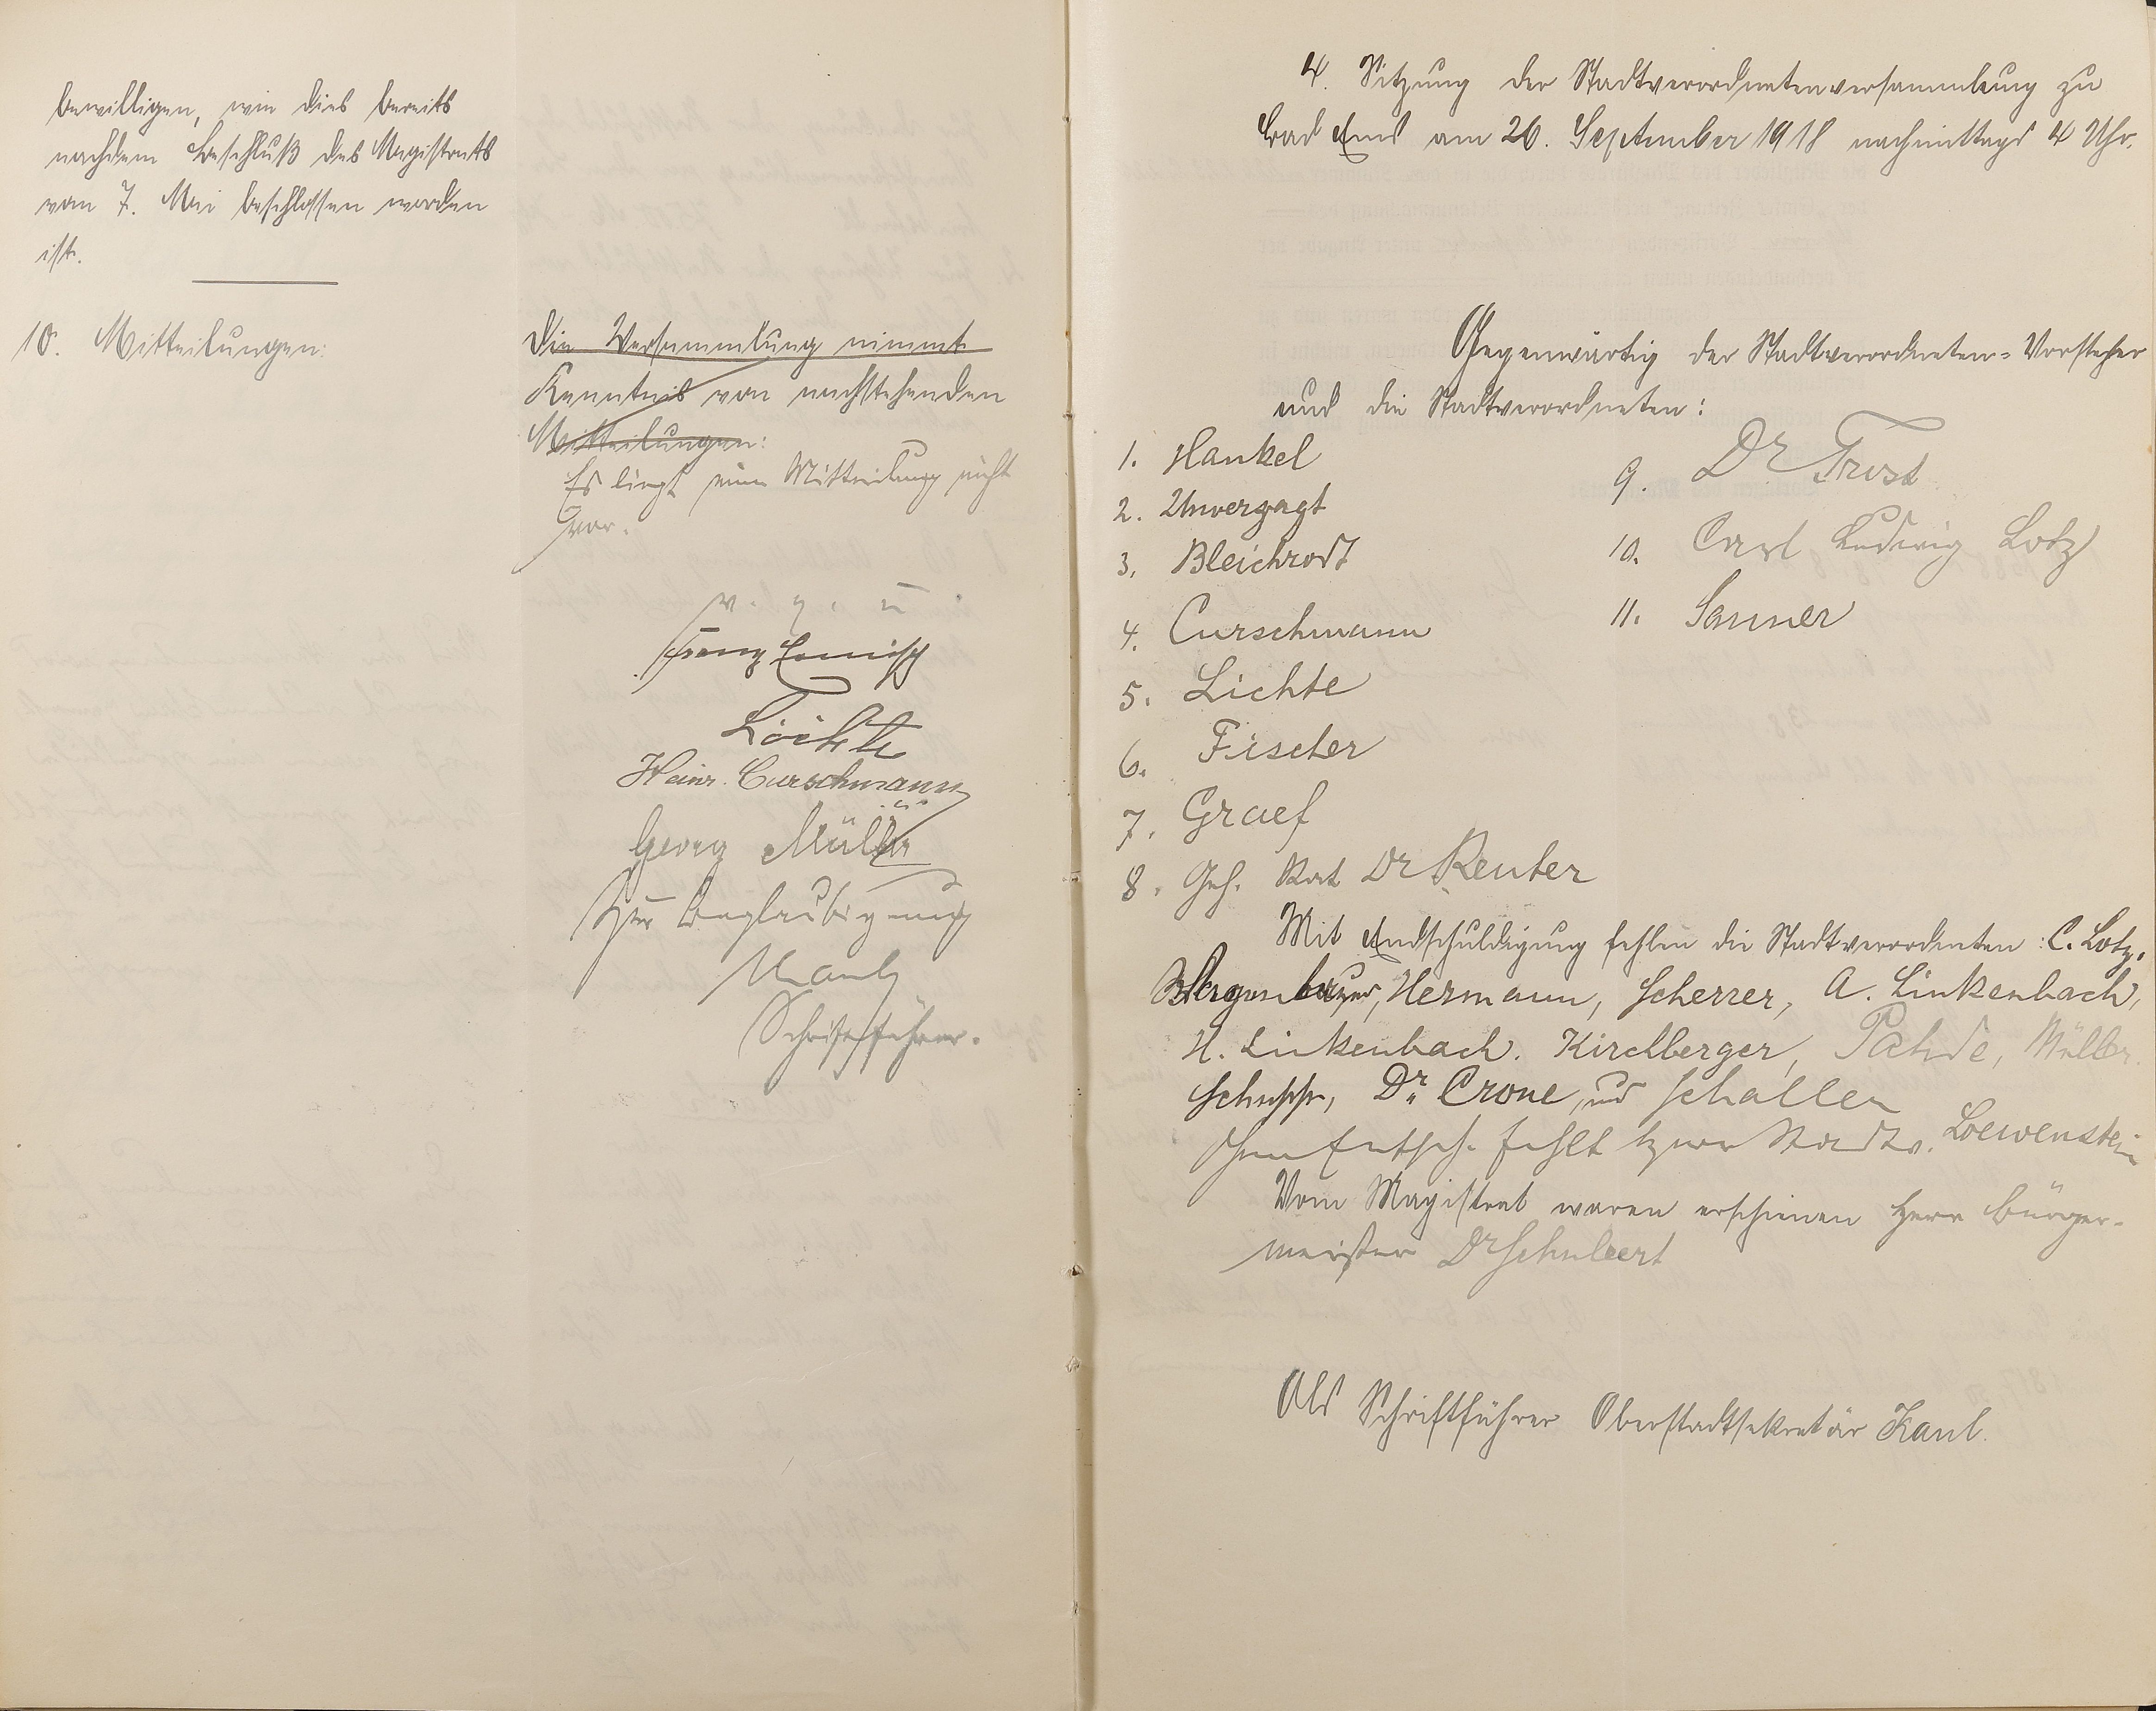 bewilligen, wie dies bereits
nachdem Beschluß des Magistrats
vom 7. Mai beschlossen worden
ist.
10. Mitteilungen:
Die Versammlung nimmt
Kenntnis von nachstehenden
Mitteilungen:
Es liegt eine Mitteilung nicht
vor.
v. g. u.
Franz
Lichte
Heinr. Curschmann
Georg Müller
Zur Beglaubigung
Kaul
Schriftführer.
4. Sitzung der Stadtverordnetenversammlung zu
Bad Ems am 26. September 1918 nachmittags 4 Uhr.
Gegenwärtig der Stadtverordneten-Vorsteher
und die Stadtverordneten:
1. Hankel
2. Unverzagt
3. Bleichrodt
4. Curschmann
5. Lichte
6. Fischer
7. Graef
8. Geh. Rat Dr Reuter
9. Dr Frost
10. Carl Ludwig Lotz
11. Sanner
Mit Endschuldigung fehlen die Stadtverordneten: C. Lotz,
Hermann, Scherrer, A. Linkenbach,
H. Linkenbach. Kirchberger, Pahde, Müller
Schupp, Dr. Crone, und Schaller
Ohne Entsch. fehlt Herr Stadtv. Loewenstein
Vom Magistrat waren erschienen Herr Bürger-
meister Dr Schubert
Als Schriftführer Oberstadtsekretär Kaul.